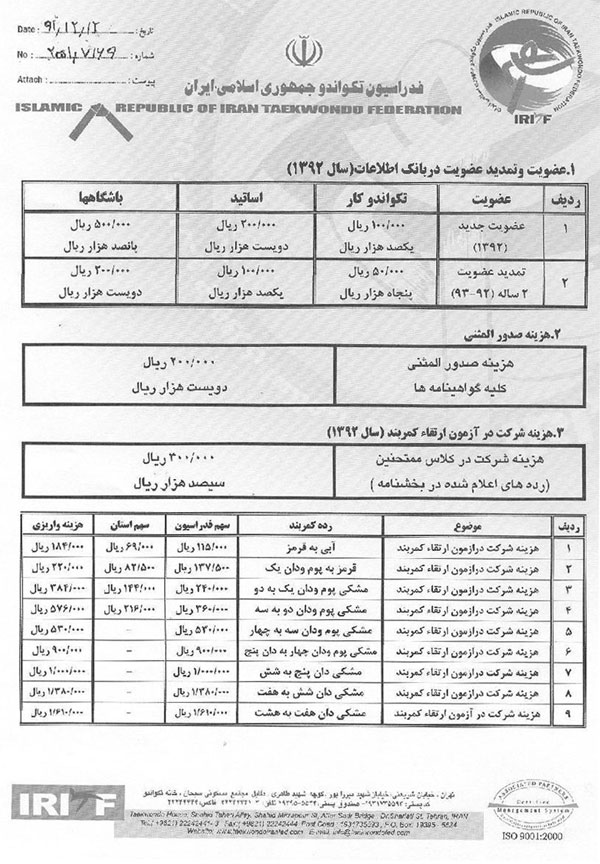 Date : ۹۱/۱۲/۱۲ تاریخ:
No : شماره:
Attach : پیوست:
ISLAMIC REPUBLIC OF IRAN TAEKWONDO FEDERATION
IRITF
فدراسیون تکواندو جمهوری اسلامی ایران
ISLAMIC REPUBLIC OF IRAN TAEKWONDO FEDERATION
۱.عضویت وتمدید عضویت در بانک اطلاعات(سال ۱۳۹۲)
ردیف عضویت تکواندو کار اساتید باشگاهها
۱ عضویت جدید ۱۰۰/۰۰۰ ریال ۲۰۰/۰۰۰ ریال ۵۰۰/۰۰۰ ریال
(۱۳۹۲) یکصد هزار ریال دویست هزار ریال پانصد هزار ریال
۲ تمدید عضویت ۵۰/۰۰۰ ریال ۱۰۰/۰۰۰ ریال ۲۰۰/۰۰۰ ریال
۲ ساله (۹۲-۹۳) پنجاه هزار ریال یکصد هزار ریال دویست هزار ریال
۲.هزینه صدور المثنی
هزینه صدور المثنی ۲۰۰/۰۰۰ ریال
کلیه گواهینامه ها دویست هزار ریال
۳.هزینه شرکت در آزمون ارتقاء کمربند (سال ۱۳۹۲)
هزینه شرکت در کلاس ممتحنین ۳۰۰/۰۰۰ ریال
(رده های اعلام شده در بخشنامه ) سیصد هزار ریال
ردیف موضوع رده کمربند سهم فدراسیون سهم استان هزینه واریزی
۱ هزینه شرکت درآزمون ارتقاء کمربند آبی به قرمز ۱۱۵/۰۰۰ ریال ۶۹/۰۰۰ ریال ۱۸۴/۰۰۰ ریال
۲ هزینه شرکت درآزمون ارتقاء کمربند قرمز به پوم ودان یک ۱۳۷/۵۰۰ ریال ۸۲/۵۰۰ ریال ۲۲۰/۰۰۰ ریال
۳ هزینه شرکت درآزمون ارتقاء کمربند مشکی پوم ودان یک به دو ۲۴۰/۰۰۰ ریال ۱۴۴/۰۰۰ ریال ۳۸۴/۰۰۰ ریال
۴ هزینه شرکت درآزمون ارتقاء کمربند مشکی پوم ودان دو به سه ۳۶۰/۰۰۰ ریال ۲۱۶/۰۰۰ ریال ۵۷۶/۰۰۰ ریال
۵ هزینه شرکت درآزمون ارتقاء کمربند مشکی پوم ودان سه به چهار ۵۳۰/۰۰۰ ریال - ۵۳۰/۰۰۰ ریال
۶ هزینه شرکت درآزمون ارتقاء کمربند مشکی پوم ودان چهار به دان پنج ۹۰۰/۰۰۰ ریال - ۹۰۰/۰۰۰ ریال
۷ هزینه شرکت درآزمون ارتقاء کمربند مشکی دان پنج به شش ۱/۰۰۰/۰۰۰ ریال - ۱/۰۰۰/۰۰۰ ریال
۸ هزینه شرکت درآزمون ارتقاء کمربند مشکی دان شش به هفت ۱/۳۸۰/۰۰۰ ریال - ۱/۳۸۰/۰۰۰ ریال
۹ هزینه شرکت در آزمون ارتقاء کمربند مشکی دان هفت به هشت ۱/۶۱۰/۰۰۰ ریال - ۱/۶۱۰/۰۰۰ ریال
IRITF
تهران ، خیابان شریعتی، خیابان شهید میرزا پور ، کوچه شهید طاهری ، خانه تکواندو
Taekwondo House, Shahid Taheri Alley, Shahid Mirzapour St, After Sadr Bridge, Dr.Shariati St, Tehran, IRAN
Website: www.taekwondoiranfed.com
Management System
ISO 9001:2000